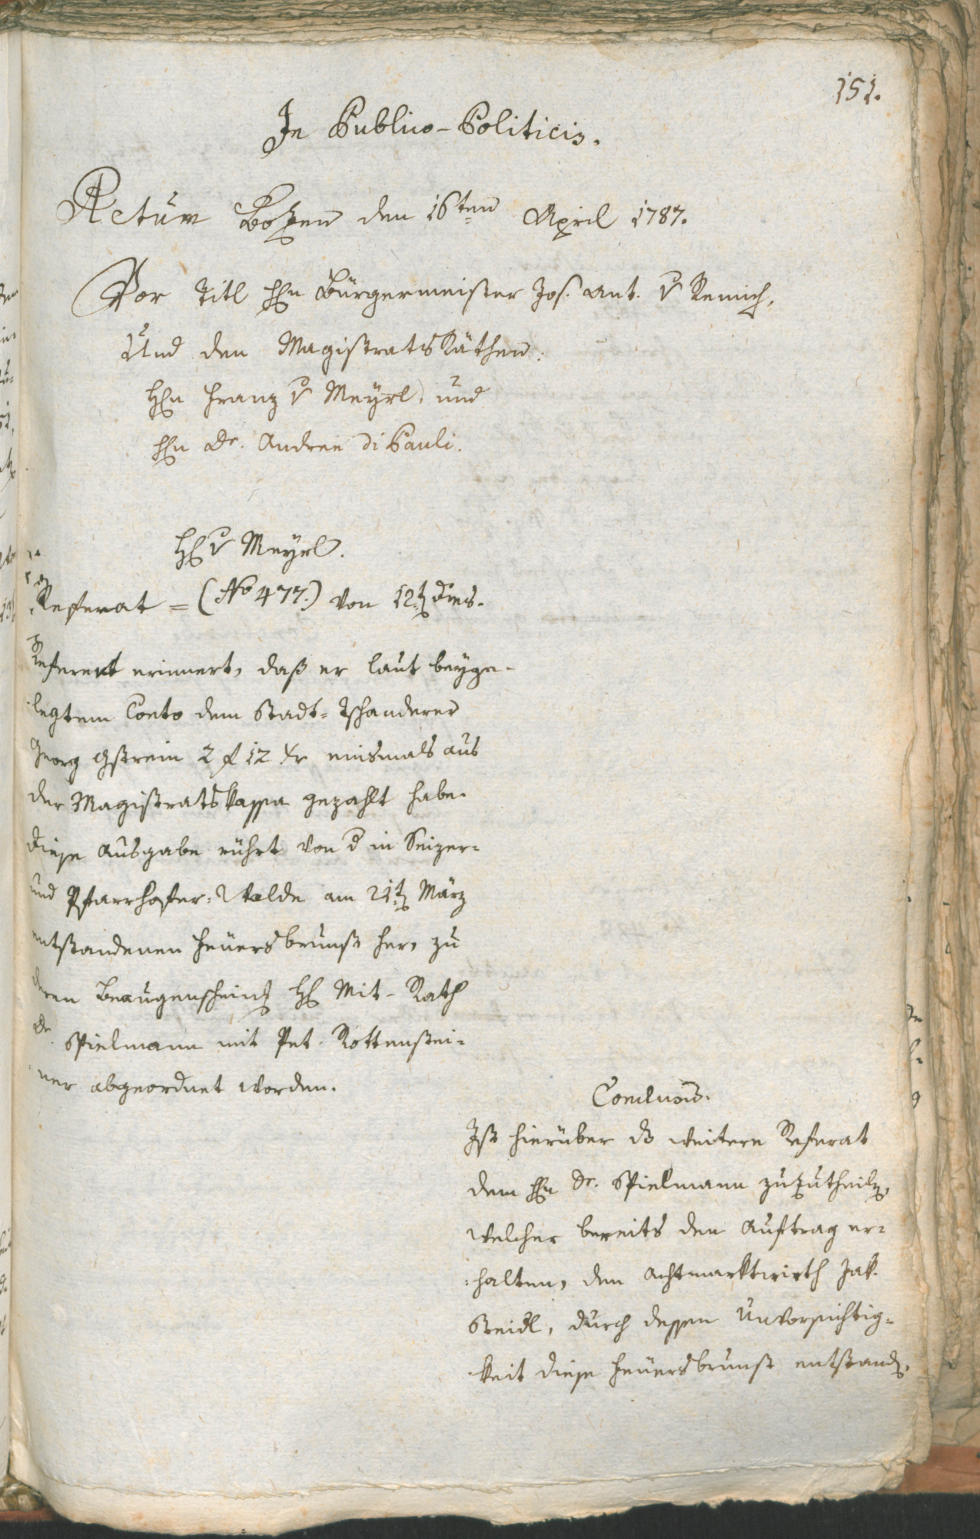 151.
In Publico-Politicis.
Actum Botzen den 16ten April 1787.
Vor Titl Hn Bürgermeister Jos. Ant. v Remich,
Und den MagistratsRäthen:
Hn Franz v Meyrl, und
Hn Dr. Andree di Pauli.
H v Meyrl.
Referat = (No 477.) von 12t dies.
Referent erinnert, daß er laut beyge-
legtem Conto dem Stadt-Tschanderer
Georg Gstrein 2 f 12 xr einsmals aus
der Magistratskassa gezahlt habe.
Diese Ausgabe rührt von d in Seizer-
und Pfarrhofer-Walde am 21t März
entstandenen Feuersbrunst her, zu
deren Beaugenschein H Mit-Rath
Dr. Spielmann mit Pet. Rottenstei-
ner abgeordnet worden.
Conclusum.
Ist hierüber ds weitere Referat
dem Hn Dr. Spielmann zuzutheiln,
welcher bereits den Auftrag er-
halten, den Achtmarktwirth Jak.
Steidl, durch dessen Unvorsichtig-
keit diese Feuersbrunst entstand,